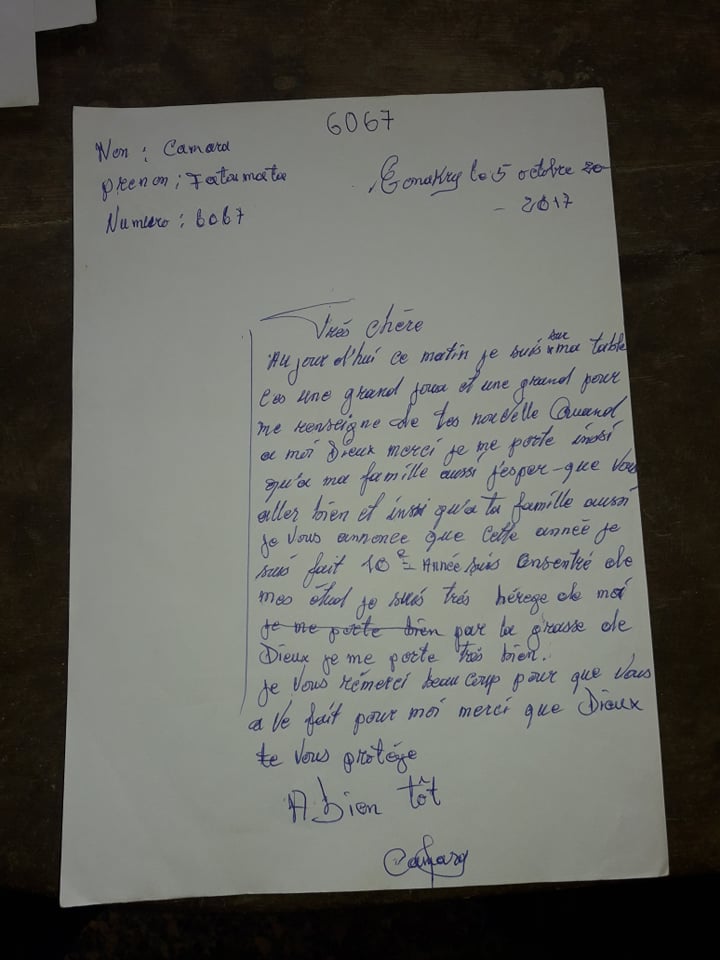 6067
Non : Camara
prenon ; Fatoumata
Numero : 6067
Conakry le 5 octobre 20
- 2017
Très chère
Aujourd'hui ce matin je suis sur ma table
Ces une grand joua et une grand pour
me renseigne de tes nouvelle Quand
a moi Dieux merci je me porte insi
qu'a ma famille aussi j'esper-que vous
aller bien et insi qu'a ta famille aussi
je vous annonce que cette année je
suis fait 10e Année suis consentré de
mes étud je suis trés hérege de moi
je me porte bien par la grasse de
Dieux je me porte trés bien.
je vous rémerci beaucoup pour que vous
a ve fait pour moi merci que Dieux
te vous protége
A bien tôt
Camara